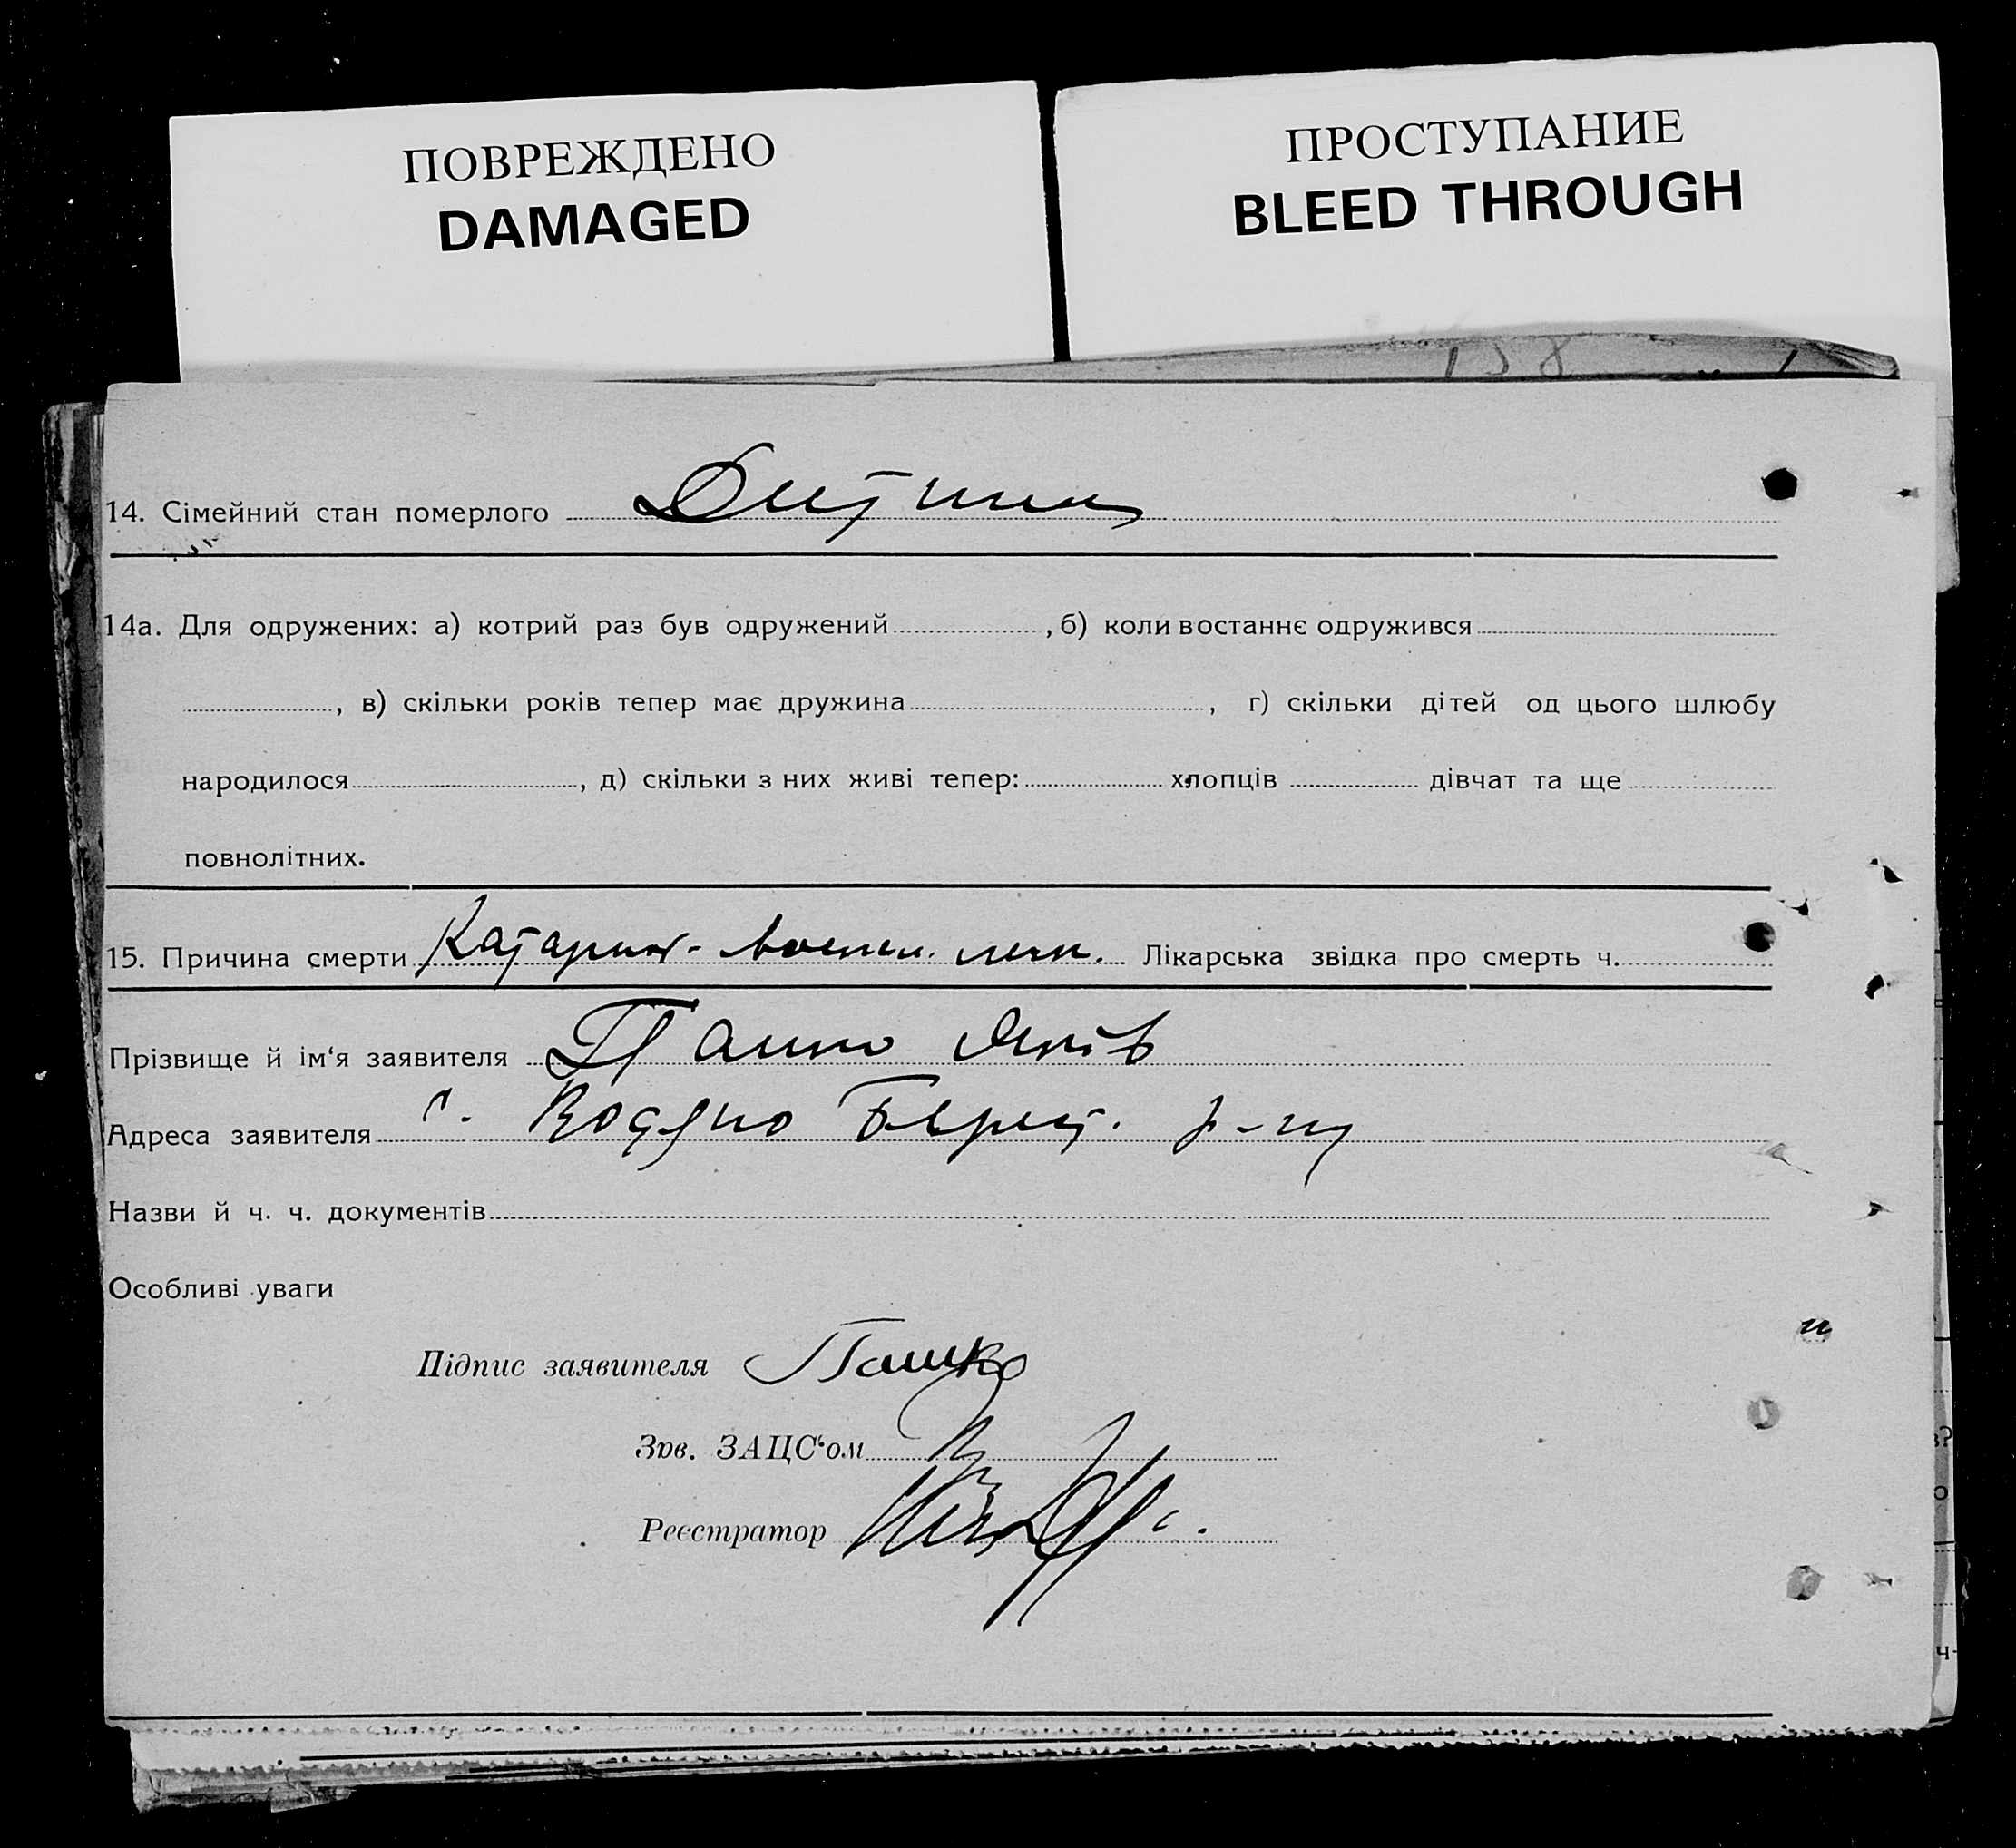 ПОВРЕЖДЕНО
DAMAGED
ПРОСТУПАНИЕ
BLEED THROUGH
158
14. Сімейний стан померлого Дитина
14а. Для одружених: а) котрий раз був одружений , б) коли востаннє одружився
, в) скільки років тепер має дружина , г) скільки дітей од цього шлюбу
народилося , д) скільки з них живі тепер: хлопців дівчат та ще
повнолітних.
15. Причина смерти Катарал. воспал. легк. Лікарська звідка про смерть ч.
Прізвище й ім‘я заявителя Пашко Яків
Адреса заявителя с. Водяно р-ну
Назви й ч. ч. документів
Особливі уваги
Підпис заявителя Пашко
Зав. ЗАЦС‘ом
Реєстратор